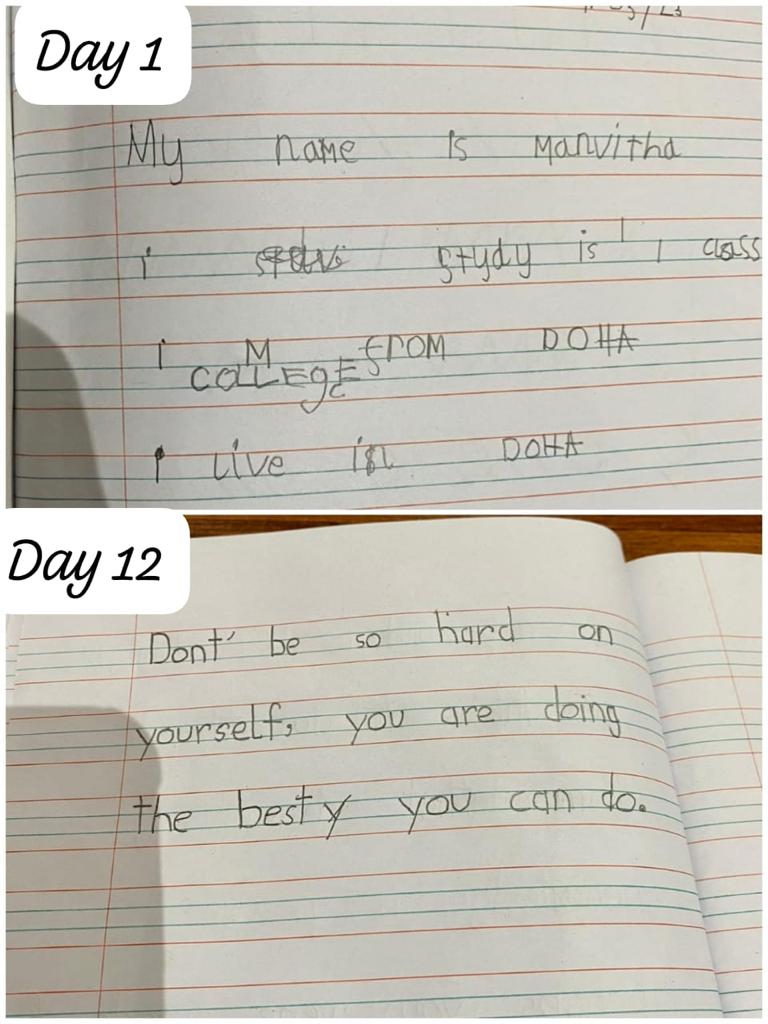 Day 1
My name is Manvitha
i study is 1 class
i M from DOHA
COLLEgE
I Live in DOHA
Day 12
Dont' be so hard on
yourself, you are doing
the besty you can do.